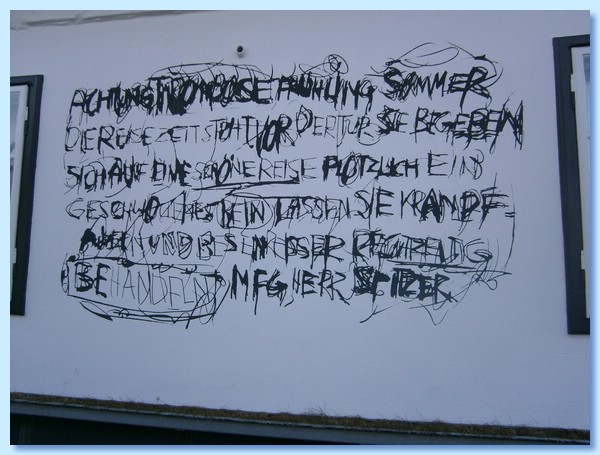 ACHTUNG THROMBOSE FRÜHLING SOMMER
DIE REISEZEIT STEHT VOR DER TÜR SIE BEGEBEN
SICH AUF EINE SCHÖNE REISE PLÖTZLICH EIN
GESCHWOLLENES BEIN LASSEN SIE KRANDE
UND BESENREISER RECHZEITIG
BEHANDELN MFG HERR SPITZER